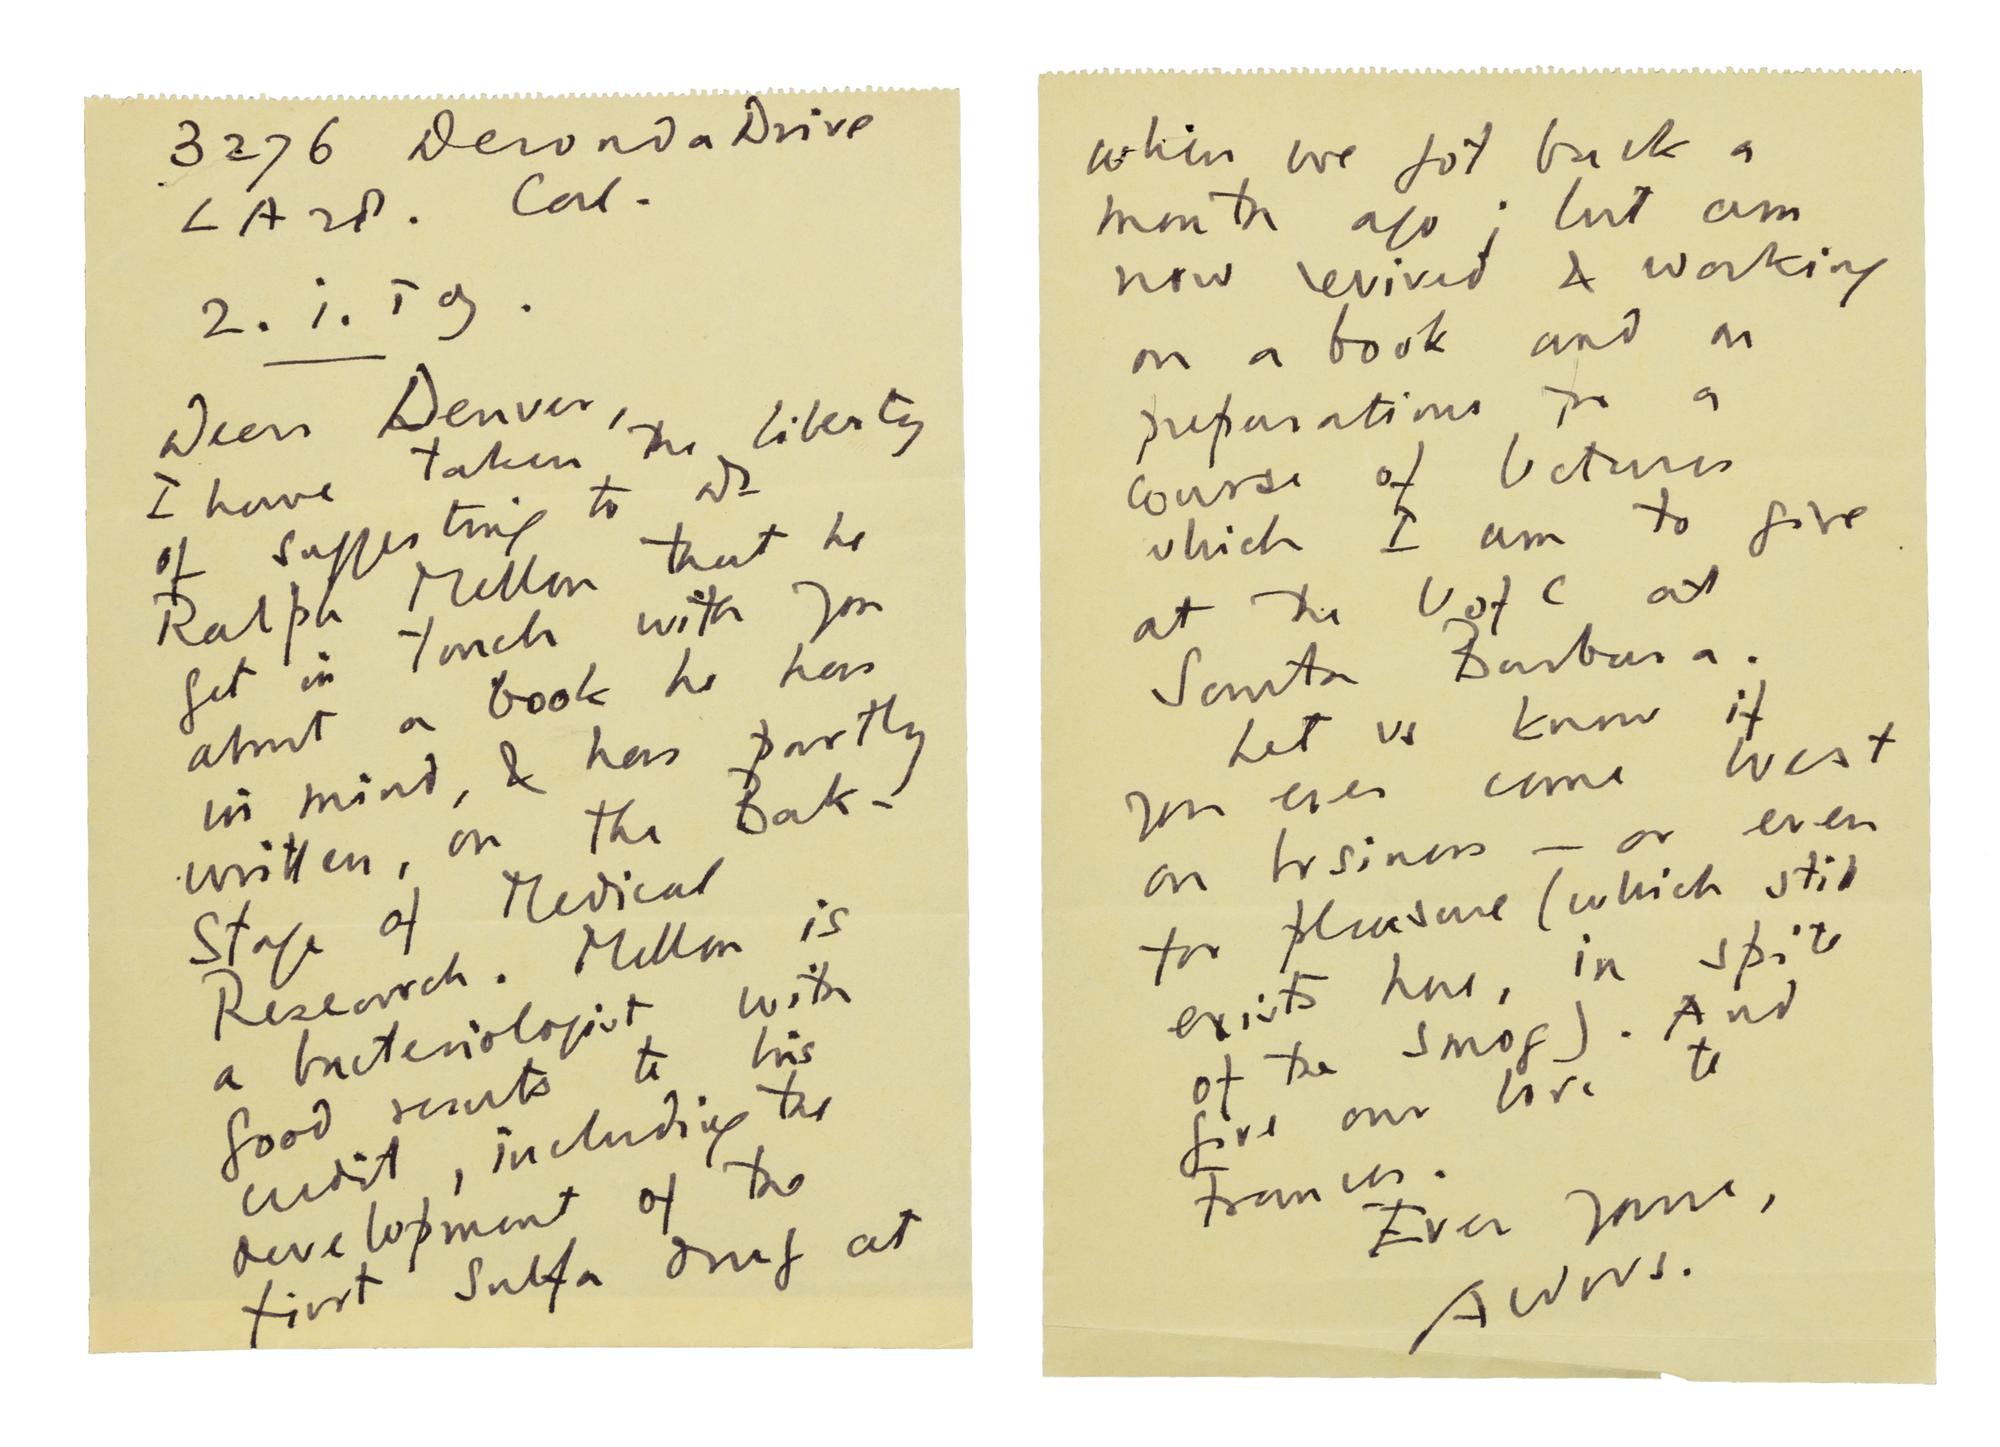 3276 Deronda Drive
LA 28. Cal.
2. i. 59.
Dear Denver,
I have taken the liberty
of suggesting to Dr
Ralph Mellon that he
get in touch with you
about a book he has
in mind, & has partly
written, on the Back-
Stage of Medical
Research. Mellon is
a bacteriologist with
good results to his
credit, including the
development of the
first Sulfa drug at
when we got back a
month ago; but am
now revived & working
on a book and on
preparations for a
course of lectures
which I am to give
at the U of C at
Santa Barbara.
Let us know if
you ever come West
on business — or even
for pleasure (which still
exists here, in spite
of the smog). And
give our love to
Frances.
Ever yours,
Aldous.